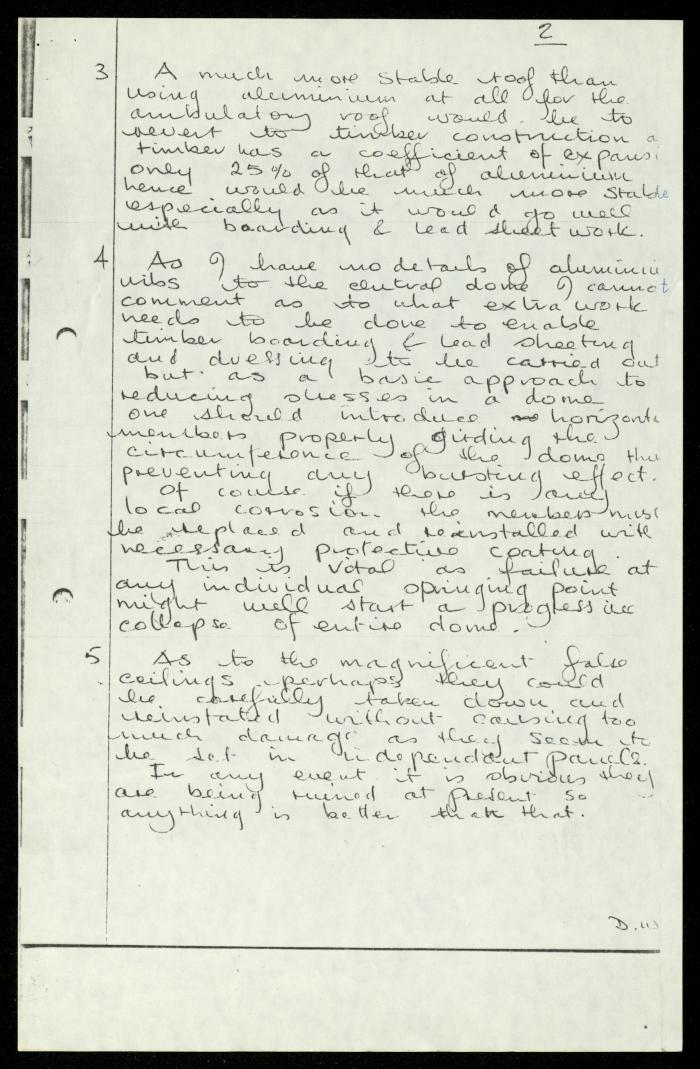 2
3 A much more stable roof than
using aluminium at all for the
ambulatory roof would be to
revert to timber construction a
timber has a coefficient of expansi
only 25% of that of aluminium
hence would be much more stable
especially as it would go well
with boarding & lead sheet work.
4 As I have no details of aluminiu
ribs to the central dome I cannot
comment as to what extra work
needs to be done to enable
timber boarding & lead sheeting
and dressing to be carried out
but as a basic approach to
reducing stresses in a dome
one should introduce horizonta
members properly girding the
circumference of the dome thu
preventing any bursting effect.
Of course if there is any
local corrosion the members must
be replaced and reinstalled with
necessary protective coating.
This is vital as failure at
any individual springing point
might well start a progressive
collapse of entire dome.
5 As to the magnificent false
ceilings perhaps they could
be carefully taken down and
reinstated without causing too
much damage as they seem to
be set in independant panels.
In any event it is obvious they
are being ruined at present so
anything is better than that.